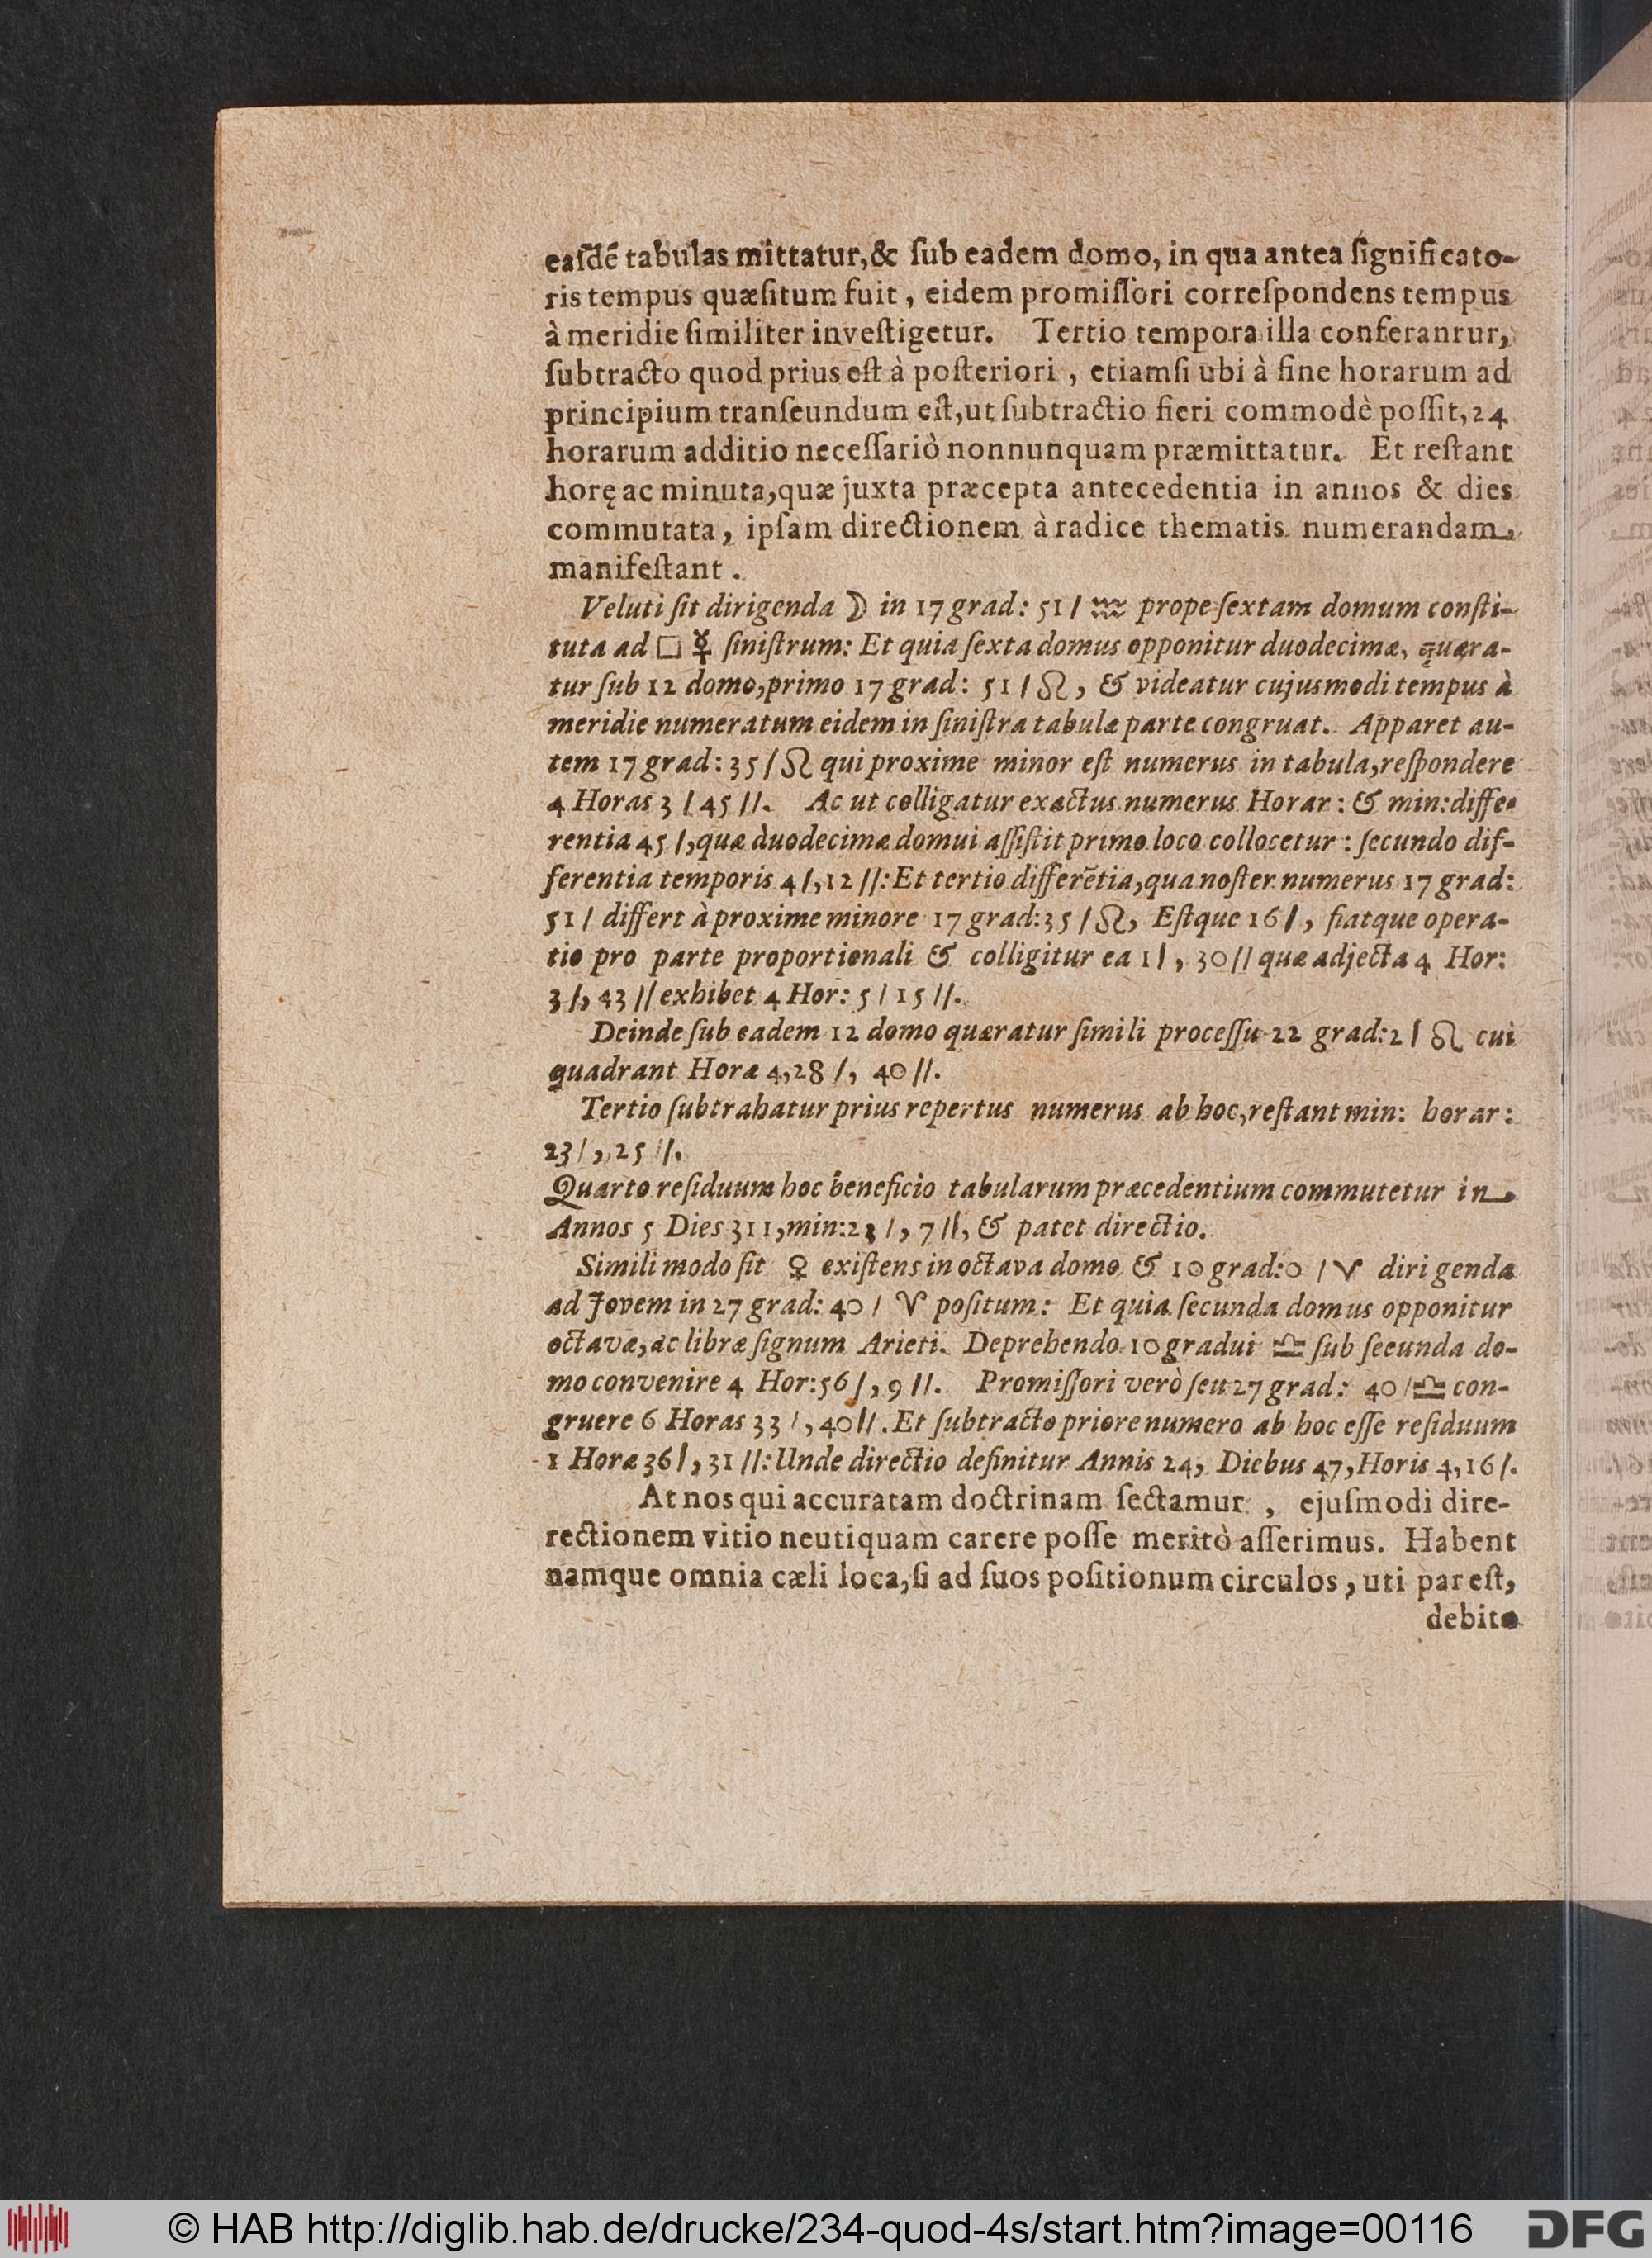 eaſdē tabulas mittatur,& ſub eadem domo, in qua antea ſignificato-
ris tempus quæſitum fuit, eidem promiſſori correſpondens tempus
à meridie ſimiliter inveſtigetur. Tertio tempora illa conferanrur,
ſubtracto quod prius eſt à poſteriori, etiamſi ubi à fine horarum ad
principium tranſeundum eſt,ut ſubtractio fieri commodè poſſit,24
horarum additio neceſſariò nonnunquam præmittatur. Et reſtant
horę ac minuta,quæ juxta præcepta antecedentia in annos & dies
commutata, ipſam directionem à radice thematis numerandam,
manifeſtant.
Veluti ſit dirigenda ☽ in 17 grad: 51 / ♒ prope ſextam domum conſti-
tuta ad □ ☿ ſiniſtrum: Et quia ſexta domus opponitur duodecimæ, quæra-
tur ſub 12 domo,primo 17 grad: 51 / ♌, & videatur cujusmodi tempus à
meridie numeratum eidem in ſiniſtra tabulæ parte congruat. Apparet au-
tem 17 grad: 35 / ♌ qui proxime minor eſt numerus in tabula,reſpondere
4 Horas 3 / 45 //. Ac ut colligatur exactus numerus Horar: & min:diffe-
rentia 45 /,quæ duodecimæ domui aſſiſtit primo loco collocetur: ſecundo dif-
ferentia temporis 4 /,12 //: Et tertio differētia,qua noſter numerus 17 grad:
51 / differt à proxime minore 17 grad:35 / ♌, Eſtque 16 /, fiatque opera-
tio pro parte proportionali & colligitur ea 1 /, 30 // quæ adjecta 4 Hor:
3 /, 43 // exhibet 4 Hor: 5 / 15 //.
Deinde ſub eadem 12 domo quæratur ſimili proceſſu 22 grad:2 / ♌ cui
quadrant Horæ 4,28 /, 40 //.
Tertio ſubtrahatur prius repertus numerus ab hoc,reſtant min: horar:
23 /, 25 //.
Quarto reſiduum hoc beneficio tabularum præcedentium commutetur in
Annos 5 Dies 311,min:23 /, 7 //, & patet directio.
Simili modo ſit ♀ exiſtens in octava domo & 10 grad:0 / ♈ dirigenda
ad Jovem in 27 grad: 40 / ♈ poſitum: Et quia ſecunda domus opponitur
octavæ,ac libræ ſignum Arieti. Deprehendo 10 gradui ♎ ſub ſecunda do-
mo convenire 4 Hor:56 /, 9 //. Promiſſori verò ſeu 27 grad: 40 / ♎ con-
gruere 6 Horas 33 /, 40 //. Et ſubtracto priore numero ab hoc eſſe reſiduum
1 Horæ 36 /, 31 //: Unde directio definitur Annis 24, Diebus 47,Horis 4,16 /.
At nos qui accuratam doctrinam ſectamur, ejuſmodi dire-
rectionem vitio neutiquam carere poſſe meritò aſſerimus. Habent
namque omnia cæli loca,ſi ad ſuos poſitionum circulos, uti par eſt,
debito
© HAB http://diglib.hab.de/drucke/234-quod-4s/start.htm?image=00116
DFG